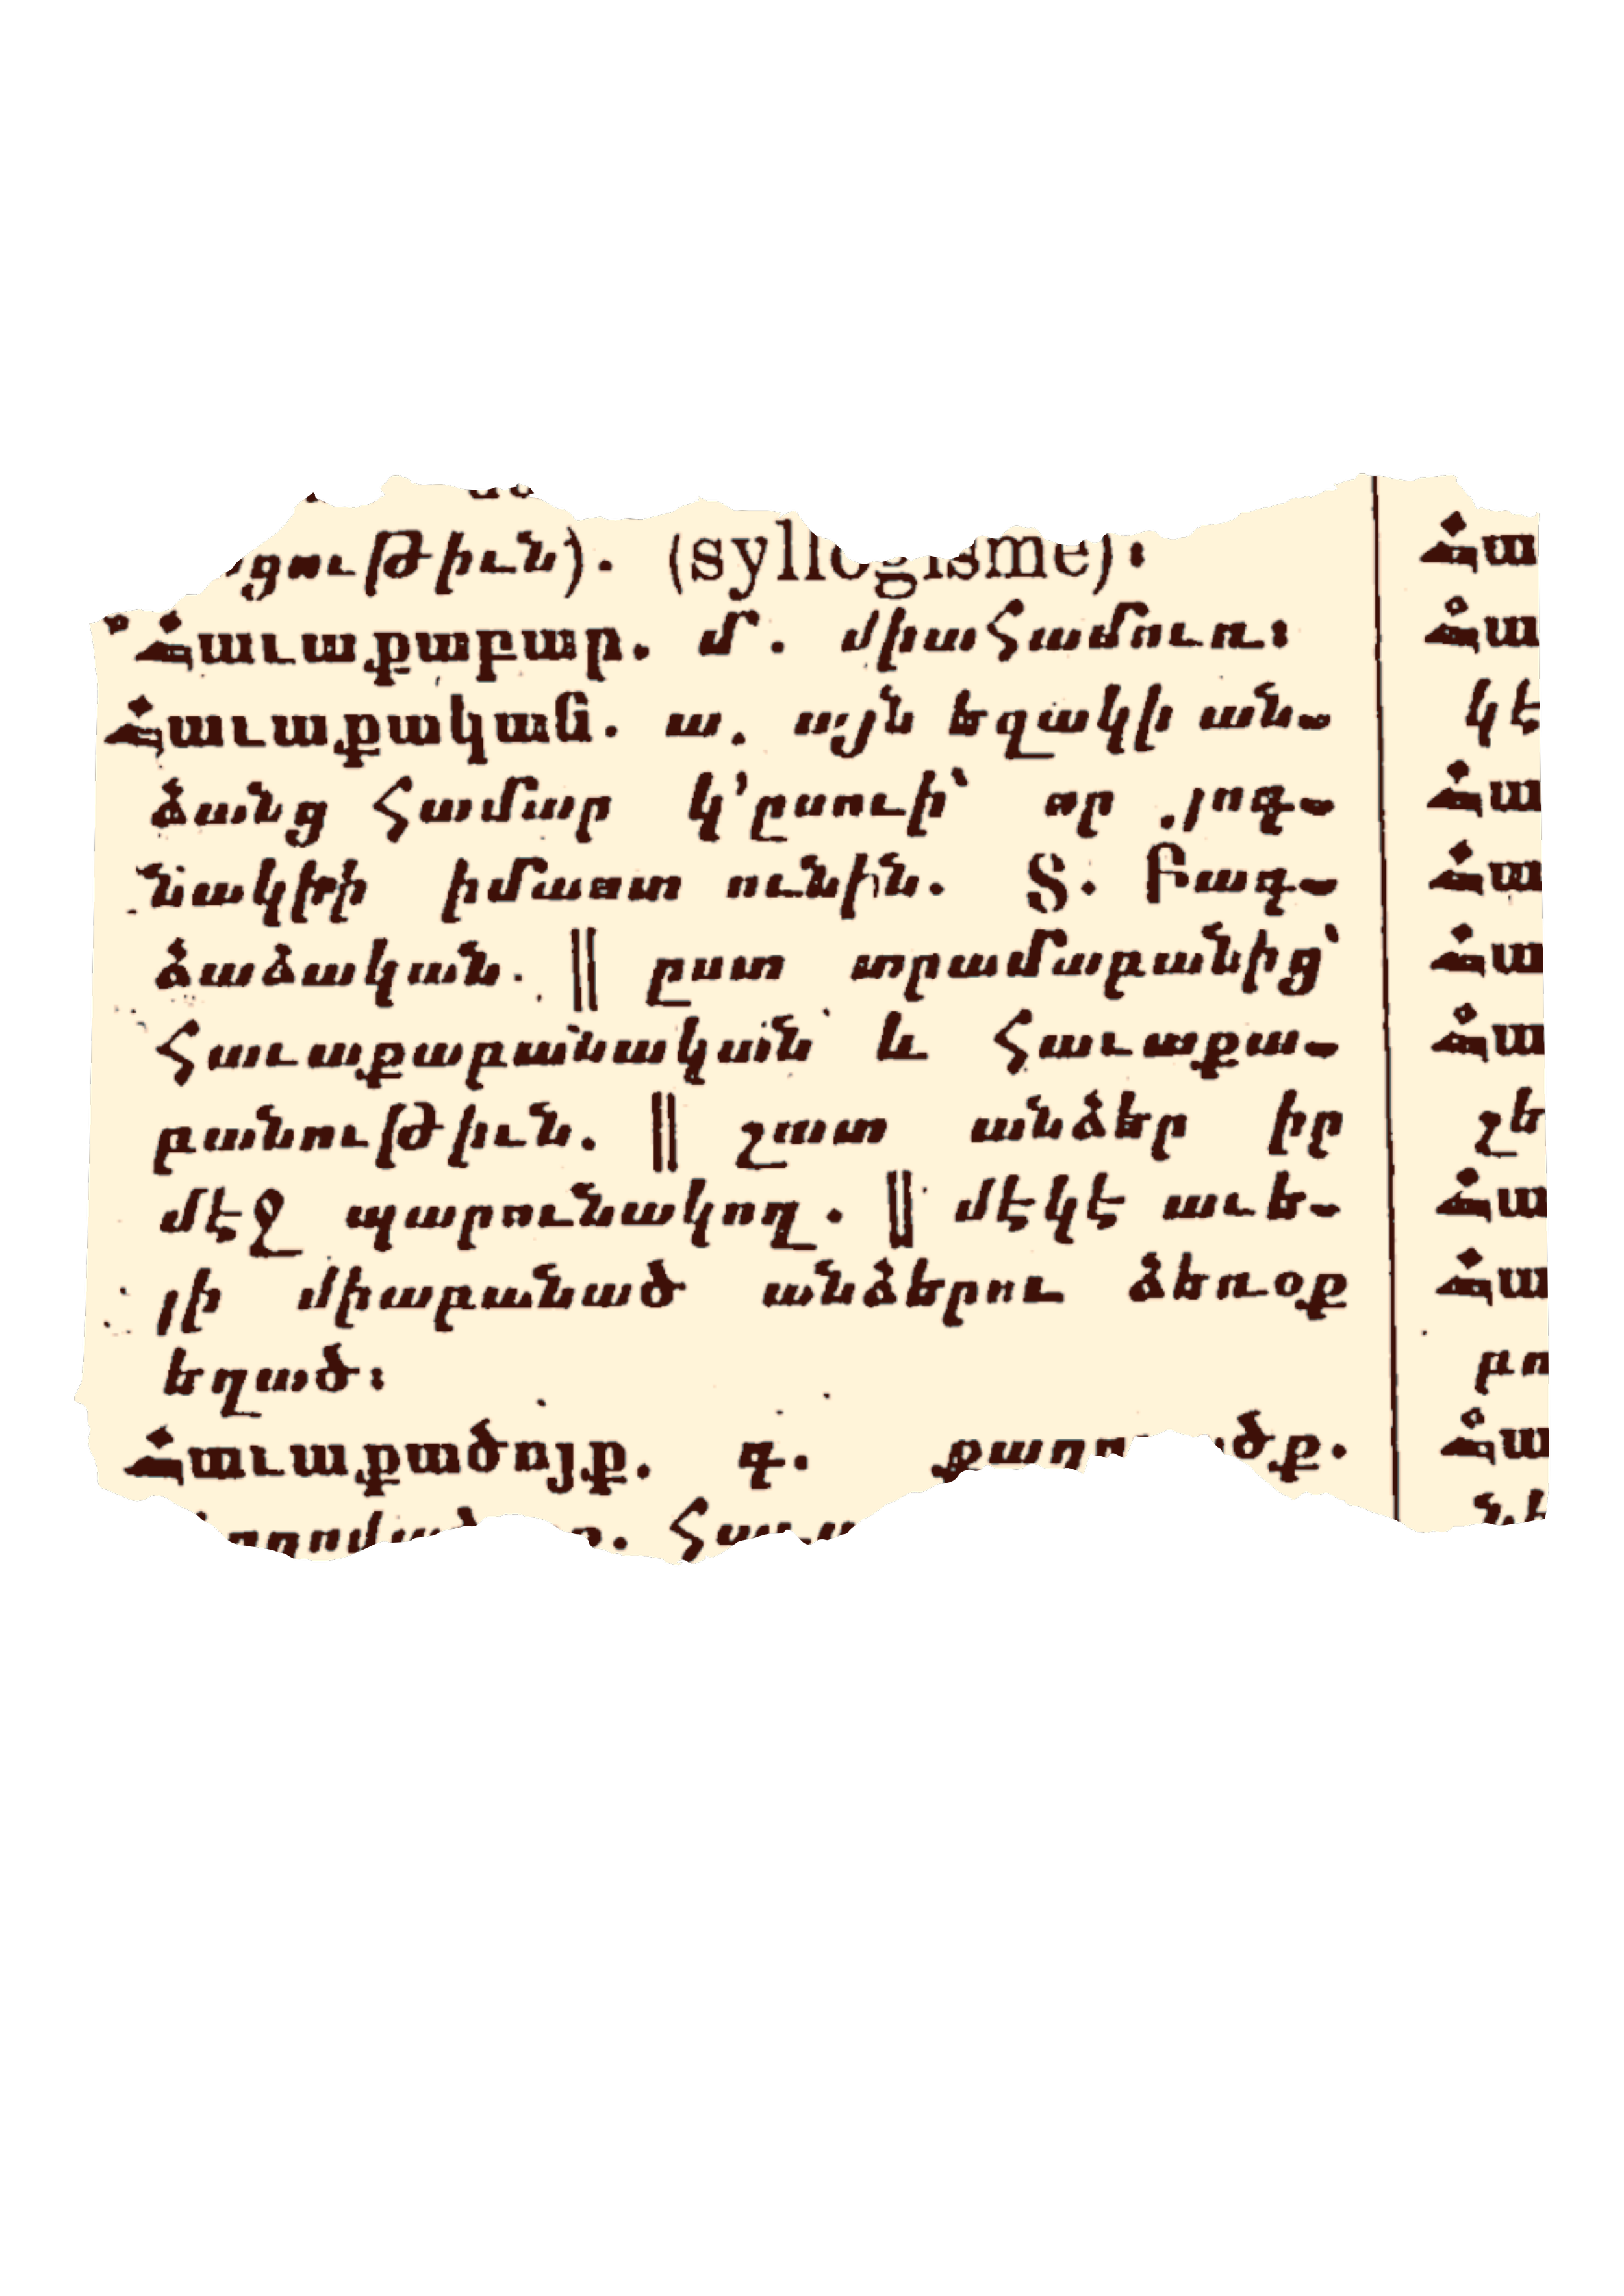 ցութիւն). (syllogisme)։
*Հաւաքաբար. մ. միահամուռ։
Հաւաքական. ա. այն եզակի ան-
ձանց համար կ՚ըսուի՝ որ յոգ-
նակիի իմաստ ունին. Տ. Բագ-
ձաձական. || ըստ տրամաբանից՝
հաւաքաբանական և հաւաքա-
բանութիւն. || շատ անձեր իր
մէջ պարունակող. || մէկէ աւե-
լի միաբանած անձերու ձեռօք
եղած։
Հաւաքածոյք. գ.
Հա
Հա
կէ
Հա
Հա
Հա
Հա
չե
Հա
Հա
բո
Հա
նե